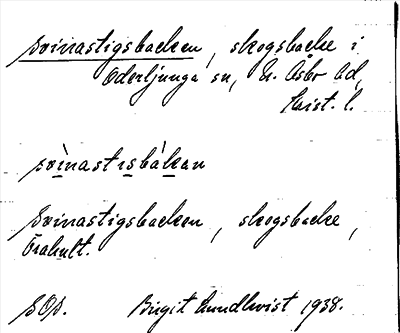 Svinastigsbacken, skogsbacke i
Oderljunga sn, N. Åsbo hd,
Krist. l.
svìnastisbàkan
Svinastigsbacken, skogsbacke,
Örahult.
SOp. Birgit Lundkvist 1938.